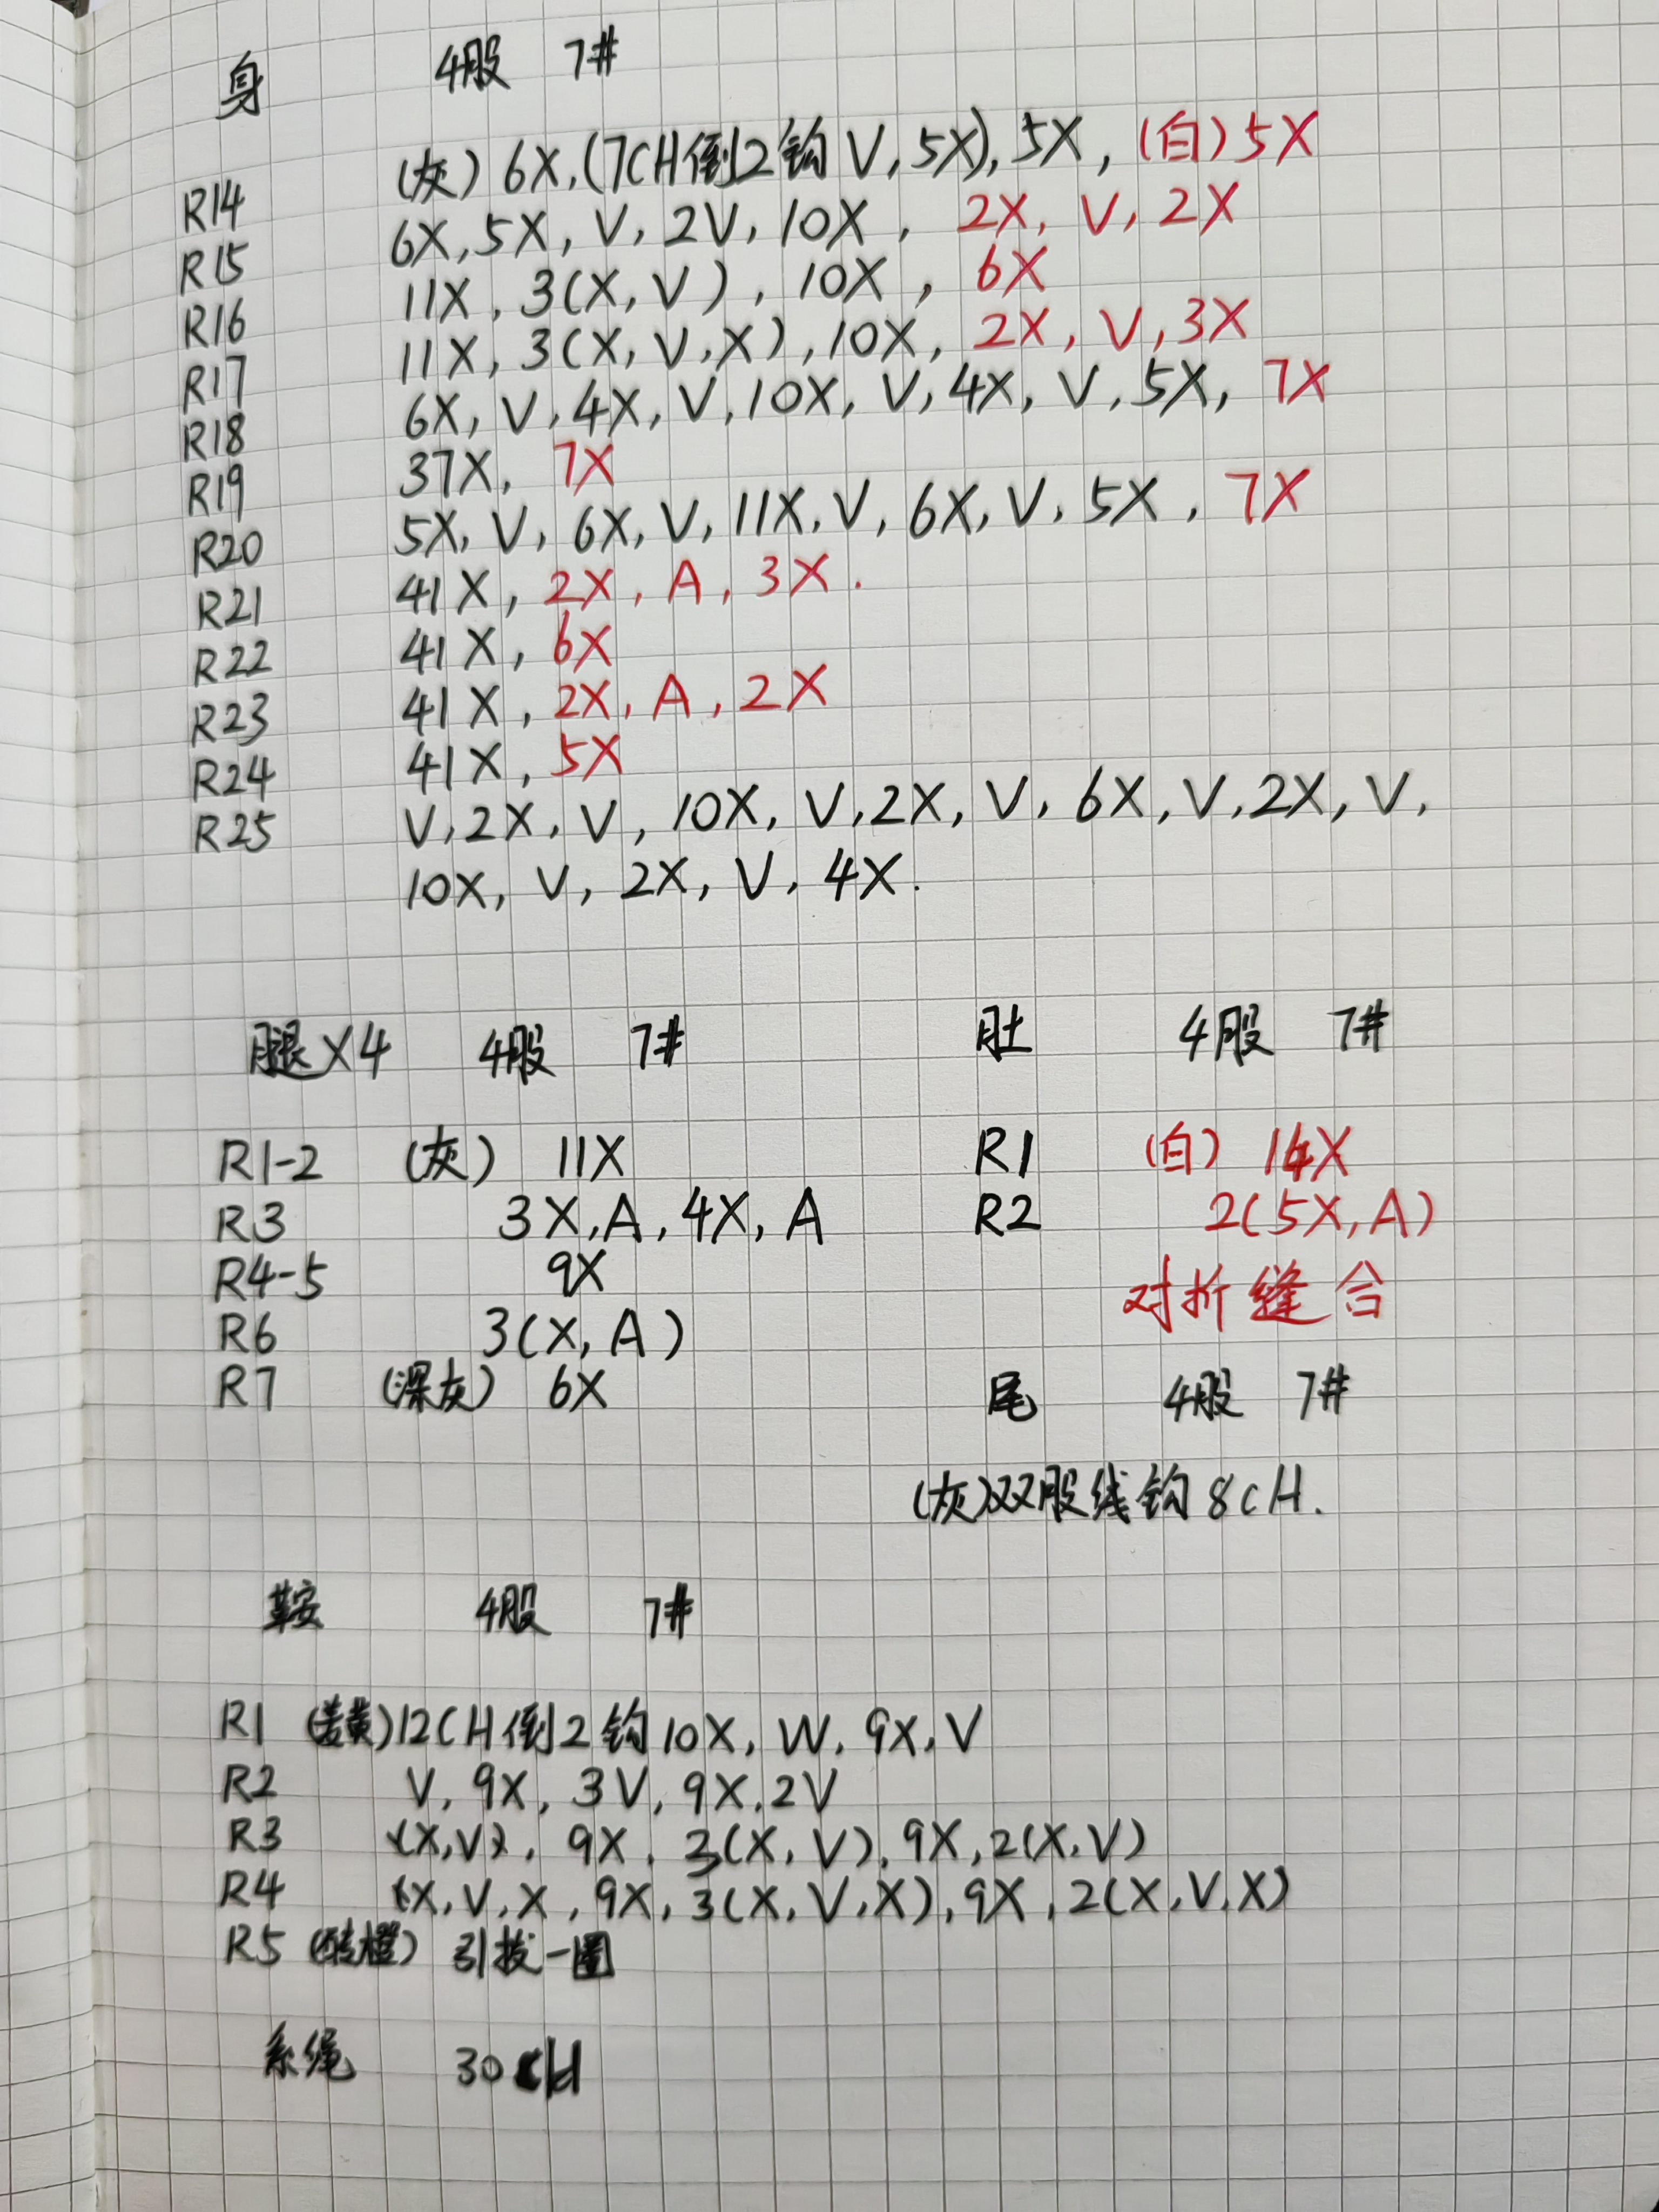 身 4股 7#
R14 (灰) 6X,(7CH倒2钩V,5X),5X,(白)5X
R15 6X,5X,V,2V,10X,2X,V,2X
R16 11X,3(X,V),10X,6X
R17 11X,3(X,V,X),10X,2X,V,3X
R18 6X,V,4X,V,10X,V,4X,V,5X,7X
R19 37X,7X
R20 5X,V,6X,V,11X,V,6X,V,5X,7X
R21 41X,2X,A,3X.
R22 41X,6X
R23 41X,2X,A,2X
R24 41X,5X
R25 V,2X,V,10X,V,2X,V,6X,V,2X,V,
10X,V,2X,V,4X.
腿X4 4股 7#
R1-2 (灰) 11X
R3 3X,A,4X,A
R4-5 9X
R6 3(X,A)
R7 (深灰) 6X
肚 4股 7#
R1 (白) 14X
R2 2(5X,A)
对折缝合
尾 4股 7#
(灰)双股线钩8CH.
鞍 4股 7#
R1 (姜黄)12CH倒2钩10X,W,9X,V
R2 V,9X,3V,9X,2V
R3 (X,V),9X,3(X,V),9X,2(X,V)
R4 (X,V,X,9X,3(X,V,X),9X,2(X,V,X)
R5 (砖橙) 引拔一圈
系绳 30CH